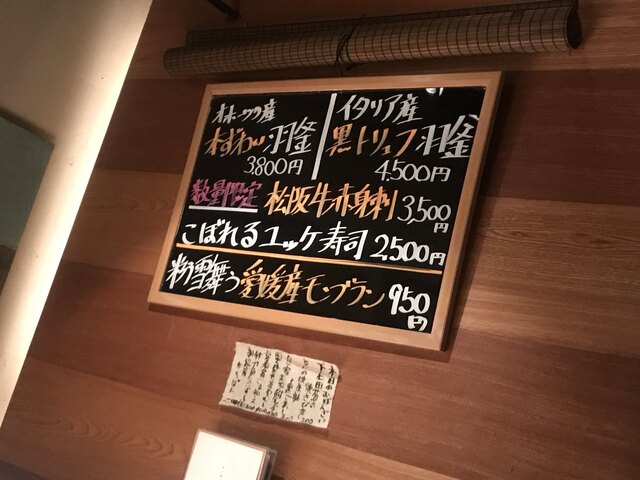 オホーツク産
本ずわい羽釜
3,800円
イタリア産
黒トリュフ羽釜
4,500円
数量限定 松阪牛赤身刺 3,500円
こぼれるユッケ寿司 2,500円
粉雪舞う愛媛産モンブラン 950円
本日のおばんざい